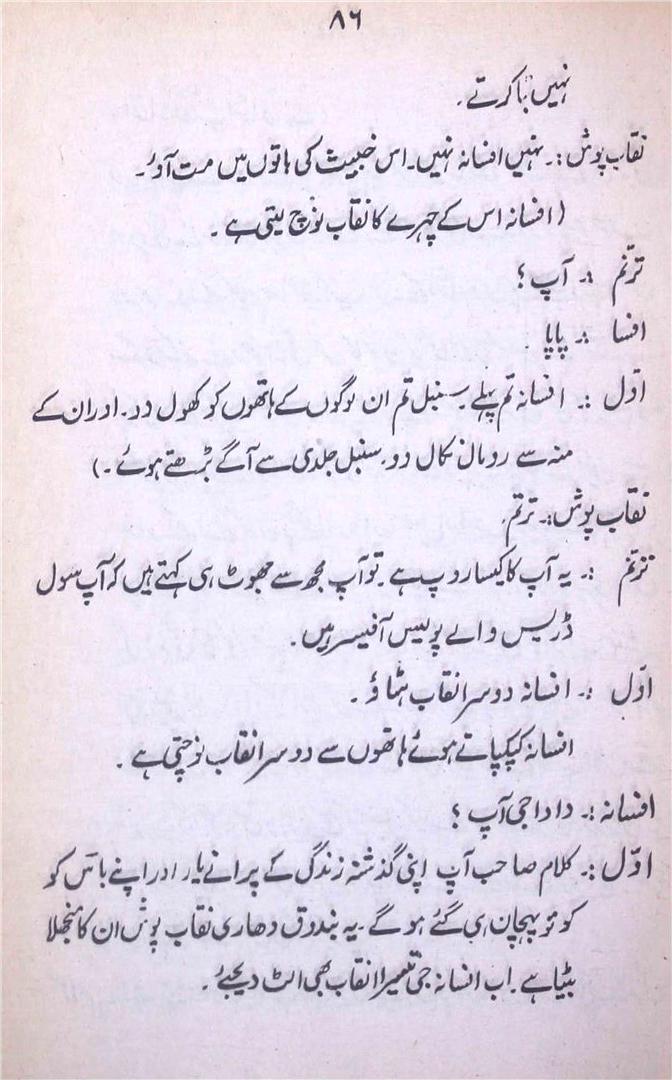 ۸۶
نہیں بنا کرتے۔
نقاب پوش:۔ نہیں افسانہ نہیں۔ اس خبیث کی باتوں میں مت آؤ۔
( افسانہ اس کے چہرے کا نقاب نوچ لیتی ہے۔
ترنم :۔ آپ ؟
افسا :۔ پاپا
اوّل :۔ افسانہ تم پہلے سنبل تم ان لوگوں کے ہاتھوں کو کھول دو۔ اور ان کے
منہ سے رومال نکال دو۔ سنبل جلدی سے آگے بڑھتے ہوئے۔)
نقاب پوش:۔ ترنم۔
ترنم :۔ یہ آپ کا کیسا روپ ہے۔ تو آپ مجھ سے جھوٹ ہی کہتے ہیں کہ آپ سول
ڈریس والے پولیس آفیسر ہیں۔
اوّل :۔ افسانہ دوسرا نقاب ہٹاؤ۔
افسانہ کپکپاتے ہوئے ہاتھوں سے دوسرا نقاب نوچتی ہے۔
افسانہ :۔ دادا جی آپ ؟
اوّل :۔ کلام صاحب آپ اپنی گذشتہ زندگی کے پرانے یار اور اپنے باس کو
کو تو پہچان ہی گئے ہو گے۔ یہ بندوق دھاری نقاب پوش ان کا منجھلا
بیٹا ہے۔ اب افسانہ جی تیسرا نقاب بھی الٹ دیجئے۔